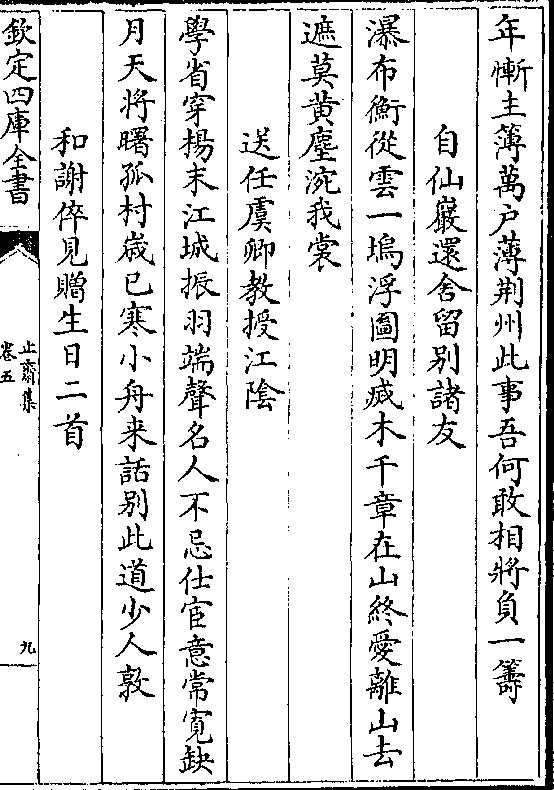 年慚主簿萬户薄荆州此事吾何敢相將負一籌
自仙巖還舍留别諸友
瀑布衡從雲一塢浮圖明滅木千章在山終愛離山去
遮莫黄塵涴我裳
送任虞卿教授江陰
學省穿楊末江城振羽端聲名人不忌仕宦意常寛缺
月天將曙孤村嵗已寒小舟来話别此道少人敦
和謝倅見贈生日二首
欽定四庫全書
止齋集
卷五
九